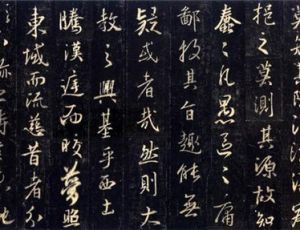 挹之莫測其源故知
蠢々凡愚區々庸
鄙投其旨趣能無
疑或者哉然則大
教之興基乎西土
騰漢庭而皎夢照
東域而流慈昔者分